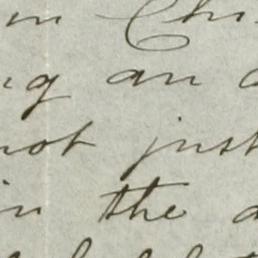 in Chi
ng an
not just
in the